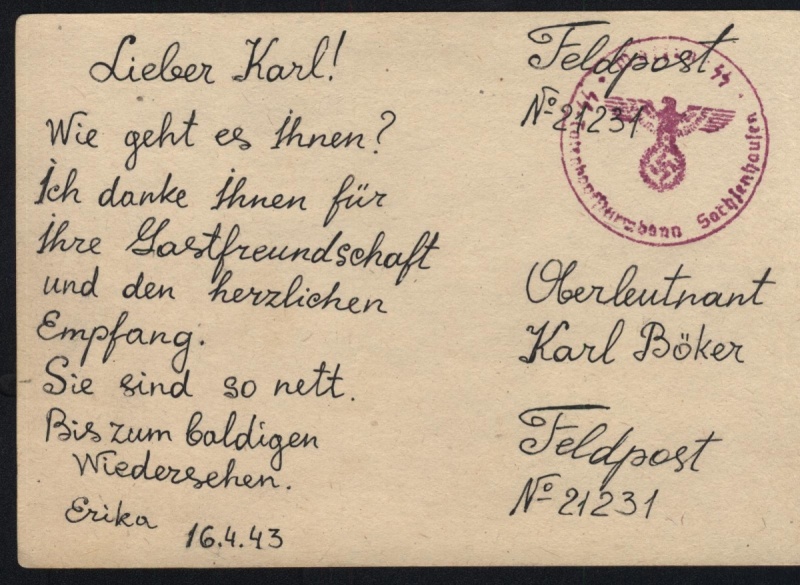 Lieber Karl!
Wie geht es Ihnen?
Ich danke Ihnen für
Ihre Gastfreundschaft
und den herzlichen
Empfang.
Sie sind so nett.
Bis zum baldigen
Wiedersehen.
Erika
16.4.43
Feldpost
№ 21231
SS Totenkopfsturmbann Sachsenhausen
Oberleutnant
Karl Böker
Feldpost
№ 21231